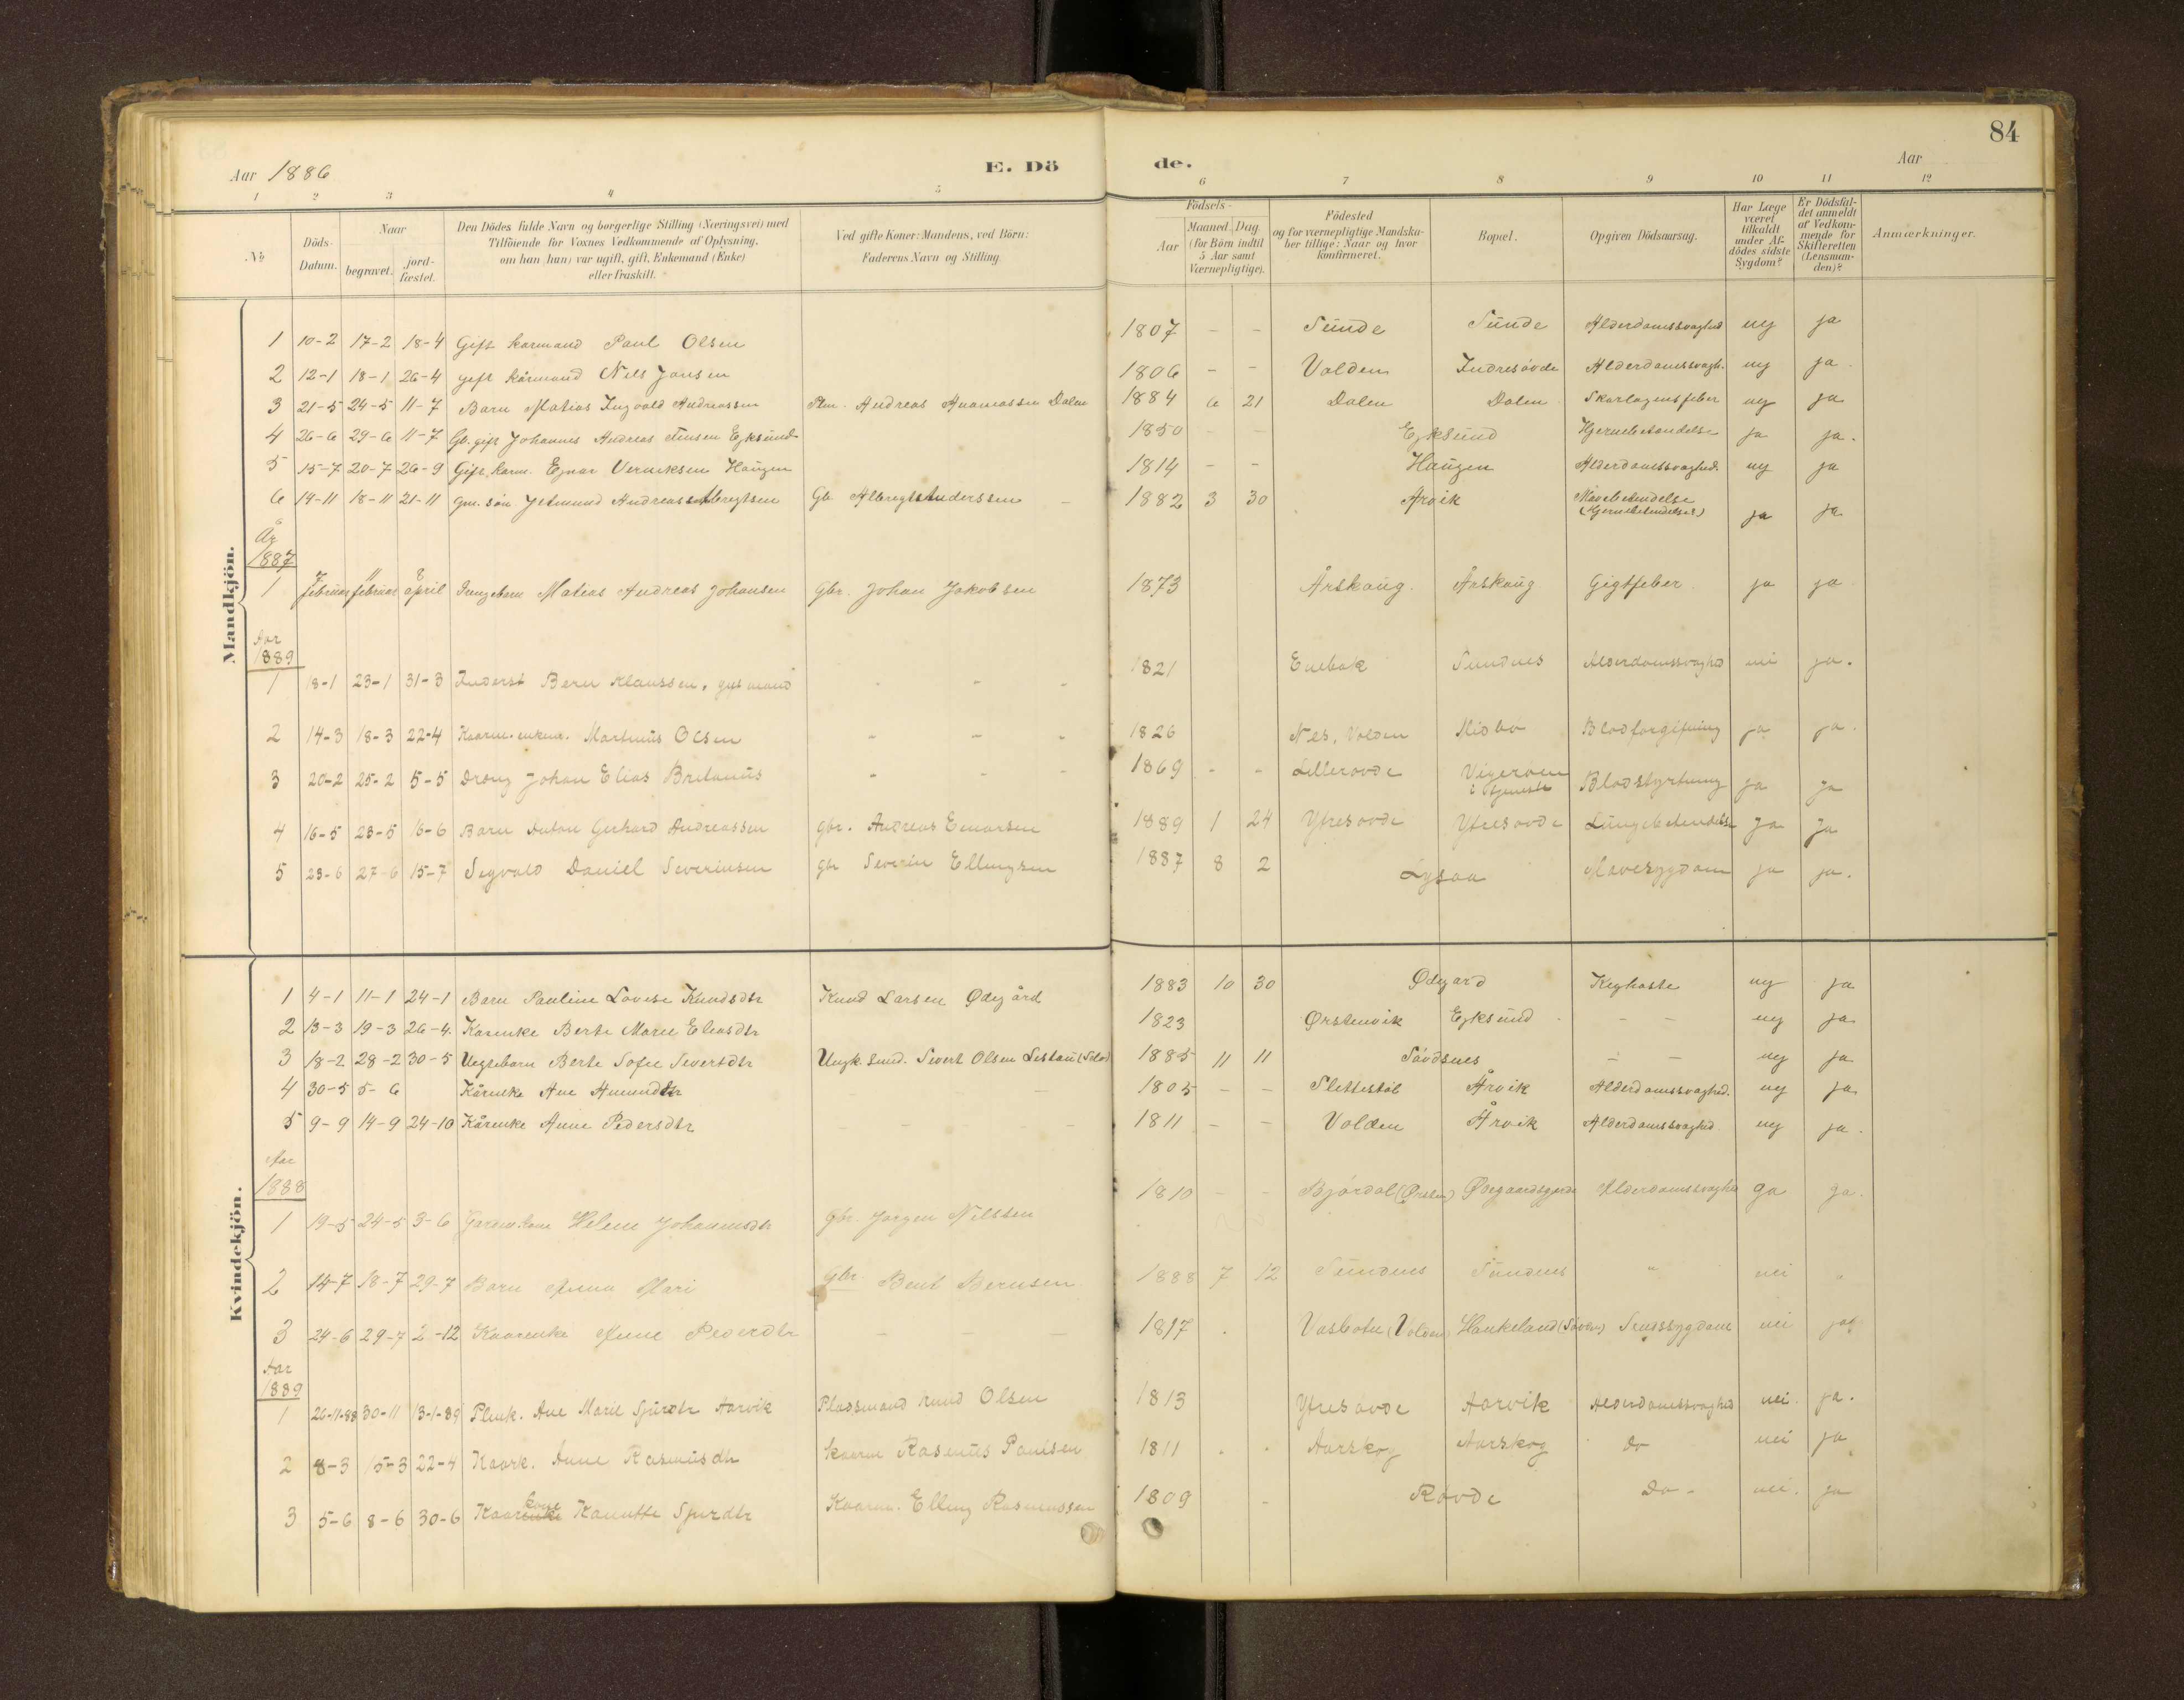 84
Aar 1886
E. Dö
de.
Aar
1 2 3 4 5 6 7 8 9 10 11 12
№
Döds-Datum.
Naar
begravet.
jord-fæstet.
Den Dödes fulde Navn og borgerlige Stilling (Næringsvei) med Tilföiende for Voxnes Vedkommende af Oplysning, om han (hun) var ugift, gift, Enkemand (Enke) eller fraskilt.
Ved gifte Koner: Mandens, ved Börn: Faderens Navn og Stilling.
Födsels-
Aar
Maaned. Dag. (for Börn indtil 5 Aar samt Værnepligtige).
Födested og for værnepligtige Mandskaber tillige: Naar og hvor konfirmeret.
Bopæl.
Opgiven Dödsaarsag.
Har Læge været tilkaldt under Afdödes sidste Sygdom?
Er Dödsfaldet anmeldt af Vedkommende for Skifteretten (Lensmanden)?
Anmærkninger.
Mandkjön.
1 10-2 17-2 18-4 Gift karmand Paul Olsen 1807 - - Sunde Sunde Alderdomssvaghed nej ja
2 12-1 18-1 26-4 gift kårmand Nils Jonsen 1806 - - Volden Indresövde Alderdomssvagh. nej ja.
3 21-5 24-5 11-7 Barn Matias Ingvald Andreassen Plm. Andreas Dalen 1884 6 21 Dalen Dalen Skarlagensfeber nej ja
4 26-6 29-6 11-7 Gb. gift Johannes Andreas Jensen Ejksund 1850 - - Ejksund Hjernebetændelse ja ja.
5 15-7 20-7 26-9 Gift karm. Ejnar Verniksen Haugen 1814 - - Haugen Alderdomssvaghed. nej ja
6 14-11 18-11 21-11 Gm. sön Andreas Albregtsen Gb. Albregt Anderssen - 1882 3 30 Årvik Mavebetændelse (Hjernebetændelse) ja ja
År 1887
1 7 februar 11 februar 8 april Matias Andreas Johansen Gbr. Johan Jakobsen 1873 Årskaug. Årskaug Gigtfeber ja ja
Aar 1889
1 18-1 23-1 31-3 Inderst Bern Klaussen, gift mand - - - 1821 Enebak Sundnes Alderdomssvaghed nei ja.
2 14-3 18-3 22-4 Kaarm. enkem. Martinus Olsen - - - 1826 Nes, Volden Midbö Blodforgiftning ja ja.
3 20-2 25-2 5-5 Dreng Johan Elias Britanus - - - 1869 - - Lillesövde i tjeneste Blodstyrtning ja ja
4 16-5 23-5 16-6 Barn Anton Gerhard Andreassen gbr. Andreas Einarsen 1889 1 24 Ytresövde Ytresövde Lungebetændelse ja ja
5 23-6 27-6 15-7 Sigvald Daniel Severinsen gbr Severin Ellingsen 1887 8 2 Lysaa Mavesygdom ja ja.
Kvindekjön.
1 4-1 11-1 24-1 Barn Pauline Lovise Knudsdtr Knud Larsen Ødegård 1883 10 30 Ødegard Kighoste nej ja
2 13-3 19-3 26-4. Karenke Berte Marie Eliasdtr 1823 Ørstenvik Ejksund - - - nej ja
3 18-2 28-2 30-5 Uegtebarn Berte Sofie Sivertdtr Ungk. Sivert Olsen 1885 11 11 Sövdsnes - - nej ja
4 30-5 5-6 Kårenke Ane Amundtr 1805 - - Slettestöl Årvik Alderdomssvaghed. nej ja.
5 9-9 14-9 24-10 Kårenke Anne Pedersdtr - - - - - 1811 - - Volden Årvik Alderdomssvaghed nej ja.
Aar 1888
1 19-5 24-5 3-6 Helene Johannesdtr Gbr. Jørgen Nilsten 1810 - - Bjørdal (Ørsten) Alderdomssvaghed ja ja.
2 14-7 18-7 29-7 Barn Anna Mari Gbr. Bent Bernsen 1888 7 12 Sundnes Sundnes " nei "
3 24-6 29-7 2-12 Kaarenke Anne Pederdtr - - - 1817 . Vasbotn (Volden) Haukeland (Sövden) Sindssygdom nei ja
Aar 1889
1 26-11-88 30-11 13-1-89 Plmk. Ane Marie Sjurdtr Aarvik Pladsmand Knud Olsen 1813 Ytresövde Aarvik Alderdomssvaghed nei. ja.
2 8-3 15-3 22-4 Kaark. Anne Rasmusdtr kaarm Rasmus Paulsen 1811 . . Aarskog Aarskog do nei ja
3 5-6 8-6 30-6 Kaarkone Kanutte Sjurdtr Kaarm. Elling Rasmussen 1809 - Rövde Do - nei. ja